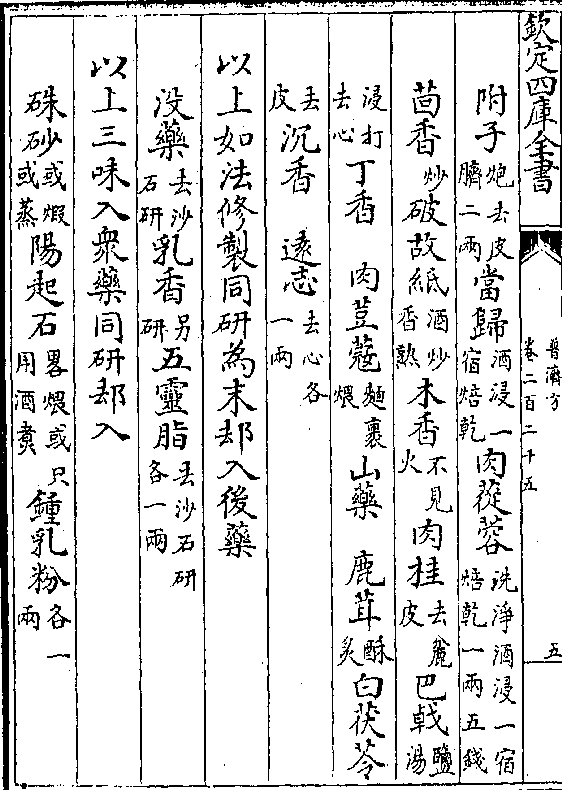 欽定四庫全書
普濟方
卷二百二十五
五
附子炮去皮臍二兩當歸酒浸一宿焙乾肉蓯蓉洗淨酒浸一宿焙乾一兩五錢
茴香炒破故紙酒炒香熟木香不見火肉桂去麄皮巴戟鹽湯
浸打去心丁香 肉荳蔻麵裹煨山藥 鹿茸酥炙白茯苓
去皮沉香 遠志去心各一兩
以上如法修製同研為末却入後藥
没藥去沙石研乳香另研五靈脂去沙石研各一兩
以上三味入衆藥同研却入
硃砂或煅或蒸陽起石畧煨或只用酒煑鍾乳粉各一兩